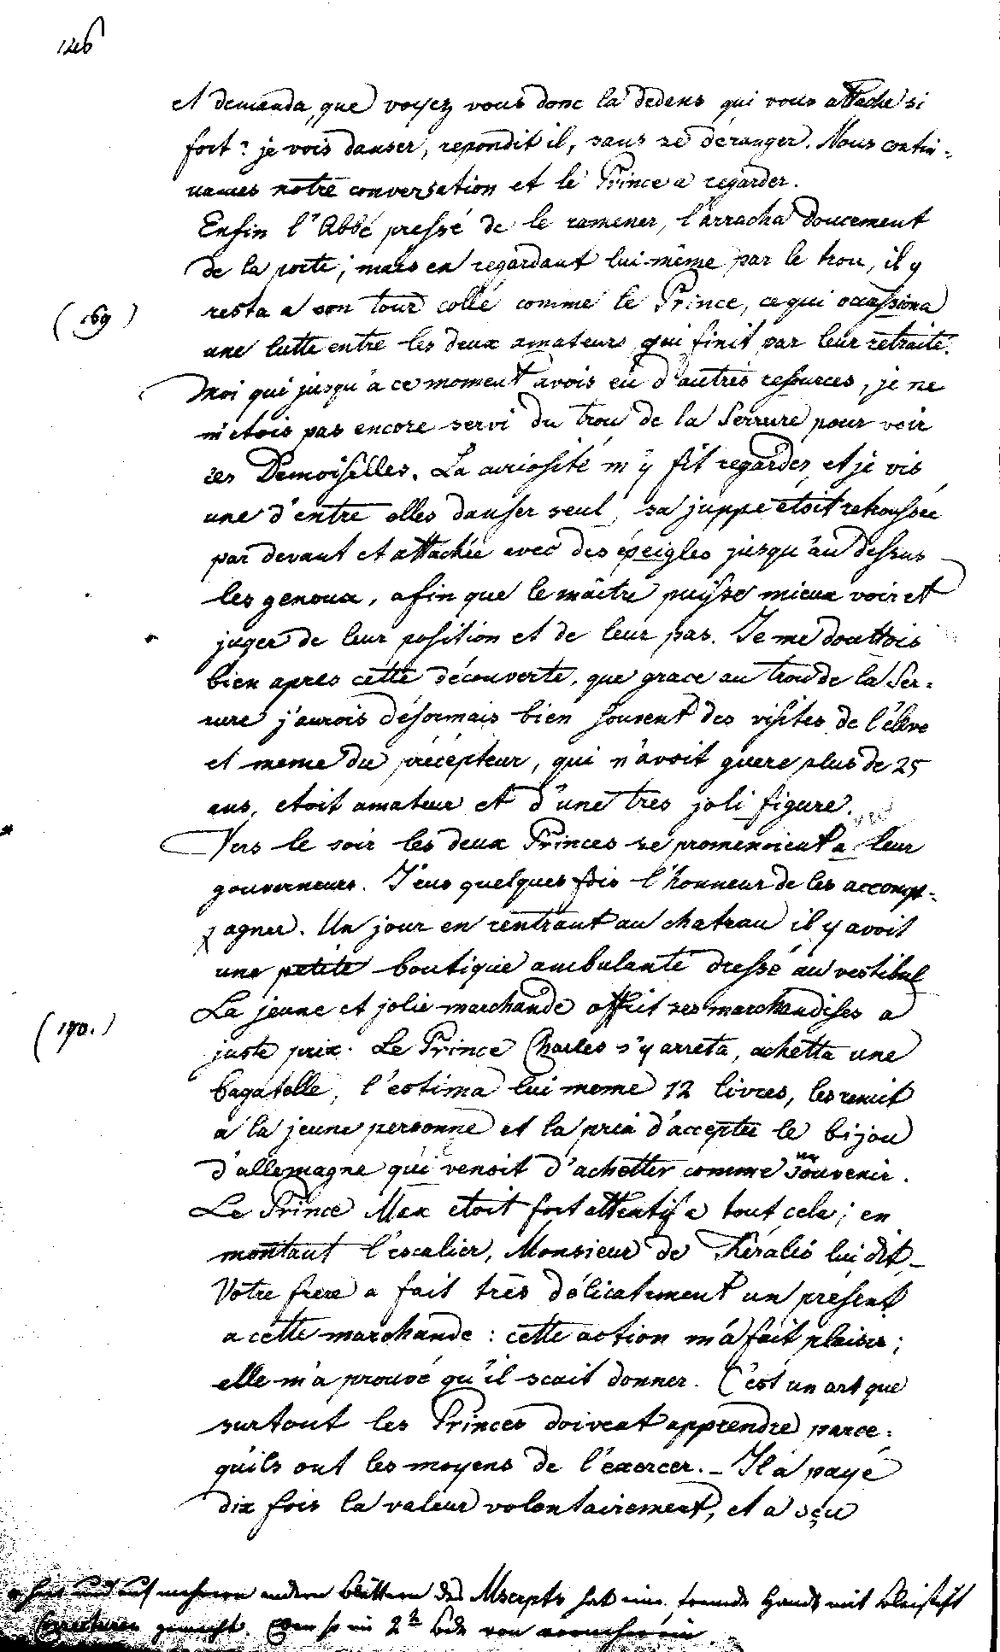 126
et demanda, que voyez vous donc la dedens qui vous attache si
fort? je vois danser, repondit il, sans se déranger. Nous contin-
uames notre conversation et le Prince a regarder.
Enfin l'Abbé pressé de le ramener, l'arracha doucement
de la porte; mais en regardant lui-même par le trou, il y
resta a son tour collé comme le Prince, ce qui occassiona
(169)
une lutte entre les deux amateurs qui finit par leur retraite.
Moi qui jusqu'a ce moment avois eu d'autres resources, je ne
m'etois pas encore servi du trou de la Serrure pour voir
ces Demoiselles. La curiosité m'y fit regarder, et je vis
une d'entre elles danser seul, sa juppe étoit retroussée
par devant et attachée avec des épeigles jusqu'au dessus
les genoux, afin que le maître puisse mieux voir et
juger de leur position et de leur pas. Je me douttois
bien apres cette découverte, que grace au trou de la Ser-
rure j'aurois désormais bien souvent des visites de l'élève
et meme du précépteur, qui n'avoit guere plus de 25
ans, etoit amateur et d'une tres joli figure.
Vers le soir les deux Princes se promenoient a leur
gouverneurs. J'eus quelques fois l'honneur de les accomp-
agner. Un jour en rentrant au chateau il y avoit
une petite boutique ambulante dressé au vestibul
La jeune et jolie marchande offrit ses marchandises a
(170.)
juste prix. Le Prince Charles s'y arreta, achetta une
bagatelle, l'estima lui meme 12 livres, les remit
a la jeune personne et la pria d'accepter le bijou
d'allemagne qui venoit d'achetter comme un souvenir.
Le Prince Max etoit fort attentif a tout cela; en
montant l'escalier, Monsieur de Kéralio lui dit_
Votre frere a fait très délicatement un présent
a cette marchande: cette action m'a fait plaisir;
elle m'a prouvé qu'il scait donner. C'est un art que
surtout les Princes doivent apprendre parce-
qu'ils ont les moyens de l'exercer._ Il a payé
dix fois la valeur volontairement, et a sçu
* hier und auf mehreren andern Blättern des Mscrpts hat eine fremde Hand mit Bleistift
Correcturen gemacht. Eben so im 2ten Bde von